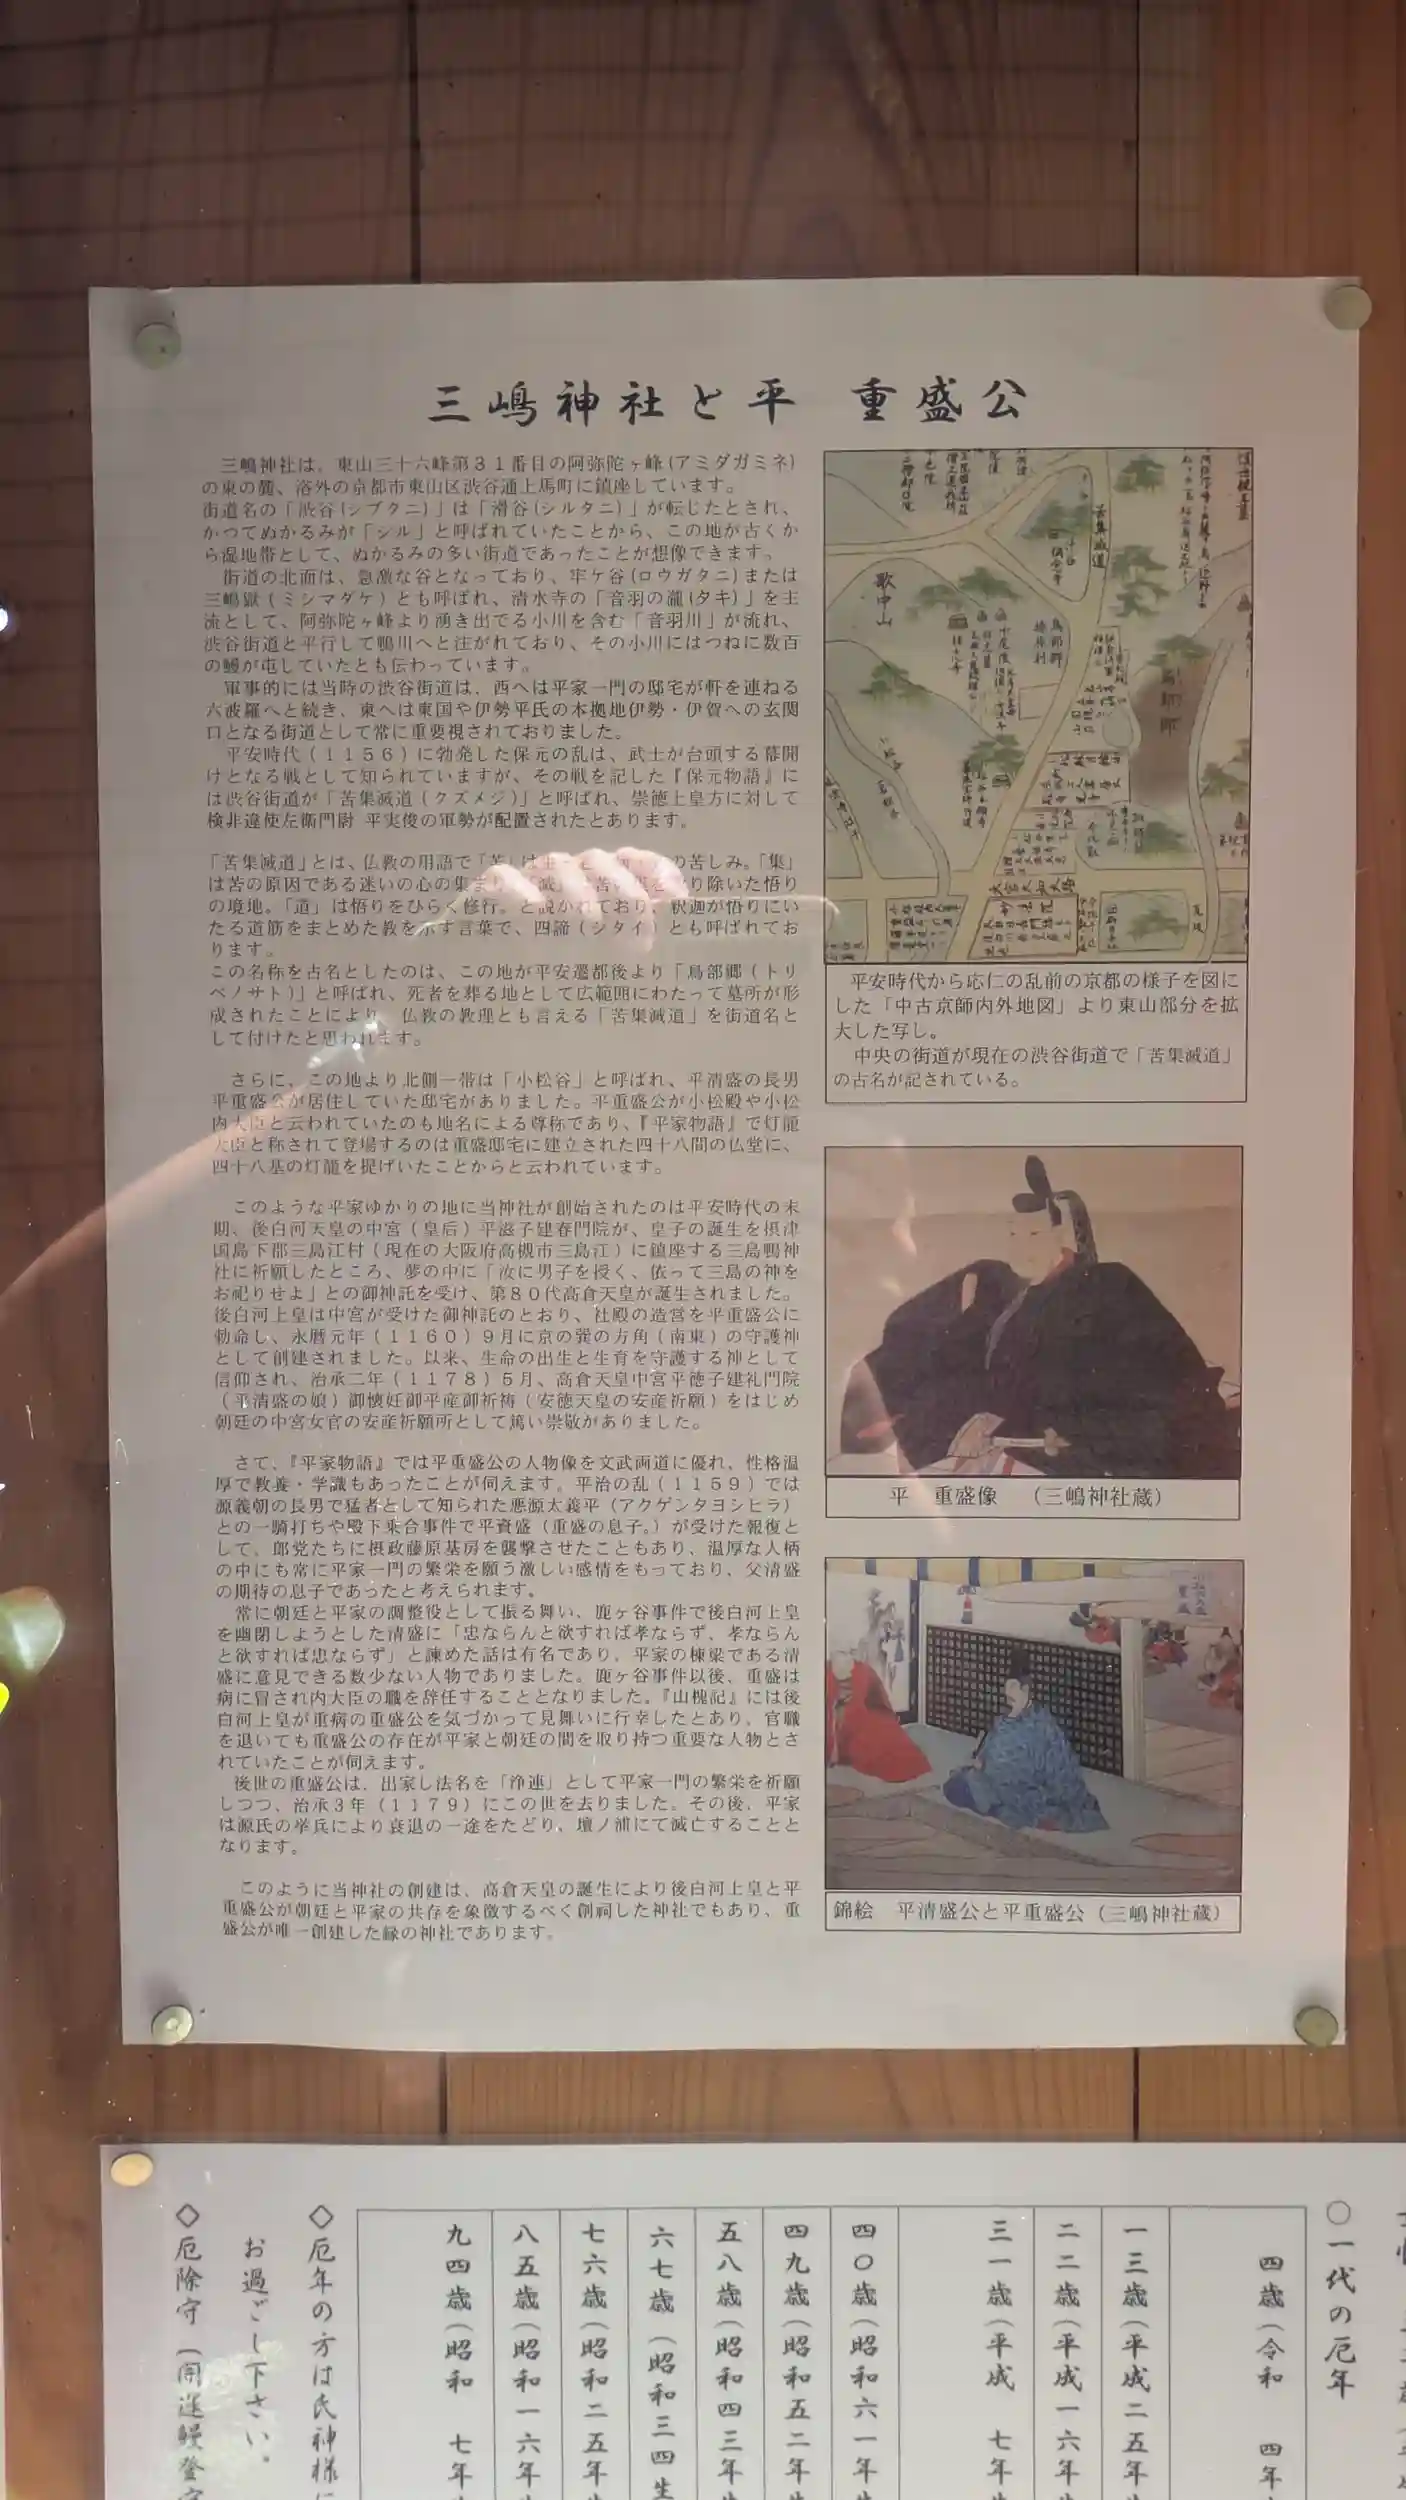 三嶋神社と平　重盛公
三嶋神社は、東山三十六峰第３１番目の阿弥陀ヶ峰(アミダガミネ)
の東の麓、洛外の京都市東山区渋谷通上馬町に鎮座しています。
街道名の「渋谷(シブタニ)」は「滑谷(シルタニ)」が転じたとされ、
かつてぬかるみが「シル」と呼ばれていたことから、この地が古くか
ら湿地帯として、ぬかるみの多い街道であったことが想像できます。
街道の北面は、急激な谷となっており、牢ケ谷(ロウガタニ)または
三嶋嶽(ミシマダケ)とも呼ばれ、清水寺の「音羽の瀧(タキ)」を主
流として、阿弥陀ヶ峰より湧き出でる小川を含む「音羽川」が流れ、
渋谷街道と平行して鴨川へと注がれており、その小川にはつねに数百
の鰻が屯していたとも伝わっています。
軍事的には当時の渋谷街道は、西へは平家一門の邸宅が軒を連ねる
六波羅へと続き、東へは東国や伊勢平氏の本拠地伊勢・伊賀への玄関
口となる街道として常に重要視されておりました。
平安時代(１１５６)に勃発した保元の乱は、武士が台頭する幕開
けとなる戦として知られていますが、その戦を記した『保元物語』に
は渋谷街道が「苦集滅道(クズメジ)」と呼ばれ、崇徳上皇方に対して
検非違使左衛門尉 平実俊の軍勢が配置されたとあります。
「苦集滅道」とは、仏教の用語で「苦」は の苦しみ。「集」
は苦の原因である迷いの心の集まり 「滅」 り除いた悟り
の境地。「道」は悟りをひらく修行。と説かれており、釈迦が悟りにい
たる道筋をまとめた教を示す言葉で、四諦(シタイ)とも呼ばれてお
ります。
この名称を古名としたのは、この地が平安遷都後より「鳥部郷(トリ
ベノサト)」と呼ばれ、死者を葬る地として広範囲にわたって墓所が形
成されたことにより、仏教の教理とも言える「苦集滅道」を街道名と
して付けたと思われます。
さらに、この地より北側一帯は「小松谷」と呼ばれ、平清盛の長男
平重盛公が居住していた邸宅がありました。平重盛公が小松殿や小松
内大臣と云われていたのも地名による尊称であり、『平家物語』で灯籠
大臣と称されて登場するのは重盛邸宅に建立された四十八間の仏堂に、
四十八基の灯籠を提げいたことからと云われています。
このような平家ゆかりの地に当神社が創始されたのは平安時代の末
期、後白河天皇の中宮(皇后)平滋子建春門院が、皇子の誕生を摂津
国島下郡三島江村(現在の大阪府高槻市三島江)に鎮座する三島鴨神
社に祈願したところ、夢の中に「汝に男子を授く、依って三島の神を
お祀りせよ」との御神託を受け、第８０代高倉天皇が誕生されました。
後白河上皇は中宮が受けた御神託のとおり、社殿の造営を平重盛公に
勅命し、永暦元年(１１６０)９月に京の巽の方角(南東)の守護神
として創建されました。以来、生命の出生と生育を守護する神として
信仰され、治承二年(１１７８)５月、高倉天皇中宮平徳子建礼門院
(平清盛の娘)御懐妊御平産御祈祷(安徳天皇の安産祈願)をはじめ
朝廷の中宮女官の安産祈願所として篤い崇敬がありました。
さて、『平家物語』では平重盛公の人物像を文武両道に優れ、性格温
厚で教養・学識もあったことが伺えます。平治の乱(１１５９)では
源義朝の長男で猛者として知られた悪源太義平(アクゲンタヨシヒラ)
との一騎打ちや殿下乗合事件で平資盛(重盛の息子。)が受けた報復と
して、郎党たちに摂政藤原基房を襲撃させたこともあり、温厚な人柄
の中にも常に平家一門の繁栄を願う激しい感情をもっており、父清盛
の期待の息子であったと考えられます。
常に朝廷と平家の調整役として振る舞い、鹿ヶ谷事件で後白河上皇
を幽閉しようとした清盛に「忠ならんと欲すれば孝ならず、孝ならん
と欲すれば忠ならず」と諫めた話は有名であり、平家の棟梁である清
盛に意見できる数少ない人物でありました。鹿ヶ谷事件以後、重盛は
病に冒され内大臣の職を辞任することとなりました。『山槐記』には後
白河上皇が重病の重盛公を気づかって見舞いに行幸したとあり、官職
を退いても重盛公の存在が平家と朝廷の間を取り持つ重要な人物とさ
れていたことが伺えます。
後世の重盛公は、出家し法名を「浄連」として平家一門の繁栄を祈願
しつつ、治承３年(１１７９)にこの世を去りました。その後、平家
は源氏の挙兵により衰退の一途をたどり、壇ノ浦にて滅亡することと
なります。
このように当神社の創建は、高倉天皇の誕生により後白河上皇と平
重盛公が朝廷と平家の共存を象徴するべく創祠した神社でもあり、重
盛公が唯一創建した縁の神社であります。
歌中山
苦集滅道
鳥部郷
平安時代から応仁の乱前の京都の様子を図に
した「中古京師内外地図」より東山部分を拡
大した写し。
中央の街道が現在の渋谷街道で「苦集滅道」
の古名が記されている。
平　重盛像　(三嶋神社蔵)
錦絵　平清盛公と平重盛公(三嶋神社蔵)
○一代の厄年
四歳(令和　四年
一三歳(平成二五年
二二歳(平成一六年
三一歳(平成　七年
四〇歳(昭和六一年
四九歳(昭和五二年
五八歳(昭和四三年
六七歳(昭和三四生
七六歳(昭和二五年
八五歳(昭和一六年
九四歳(昭和　七年
◇厄年の方は氏神様に
お過ごし下さい。
◇厄除守(開運鰻登守